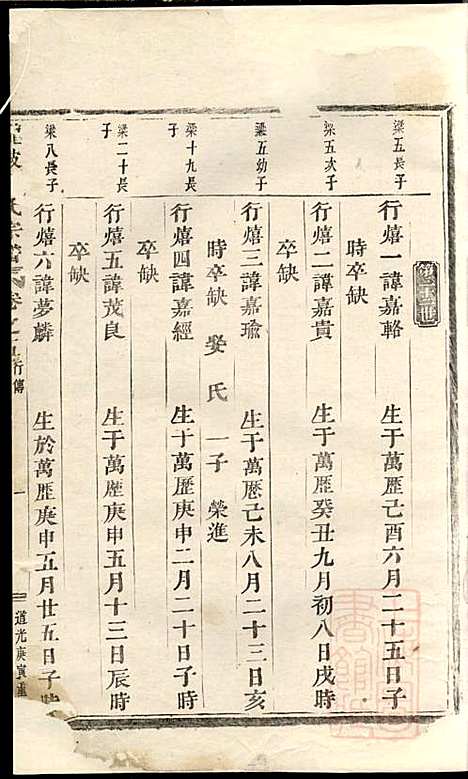 梁五長子
行熺一諱嘉輅 生于萬歷己酉六月二十五日子
時卒缺
梁五次子
行熺二諱嘉貴 生于萬歷癸丑九月初八日戌時
卒缺
梁五幼子
行熺三諱嘉瑜 生于萬歷己未八月二十三日亥
時卒缺 娶氏 一子 榮進
梁十九長子
行熺四諱嘉經 生十萬歷庚申二月二十日子時
卒缺
梁二十長子
行熺五諱茂良 生于萬歷庚申五月十三日辰時
卒缺
梁八長子
行熺六諱夢麟 生於萬歷庚申五月廿五日子時
氏宗譜 卷之 行傳 一 道光庚寅重